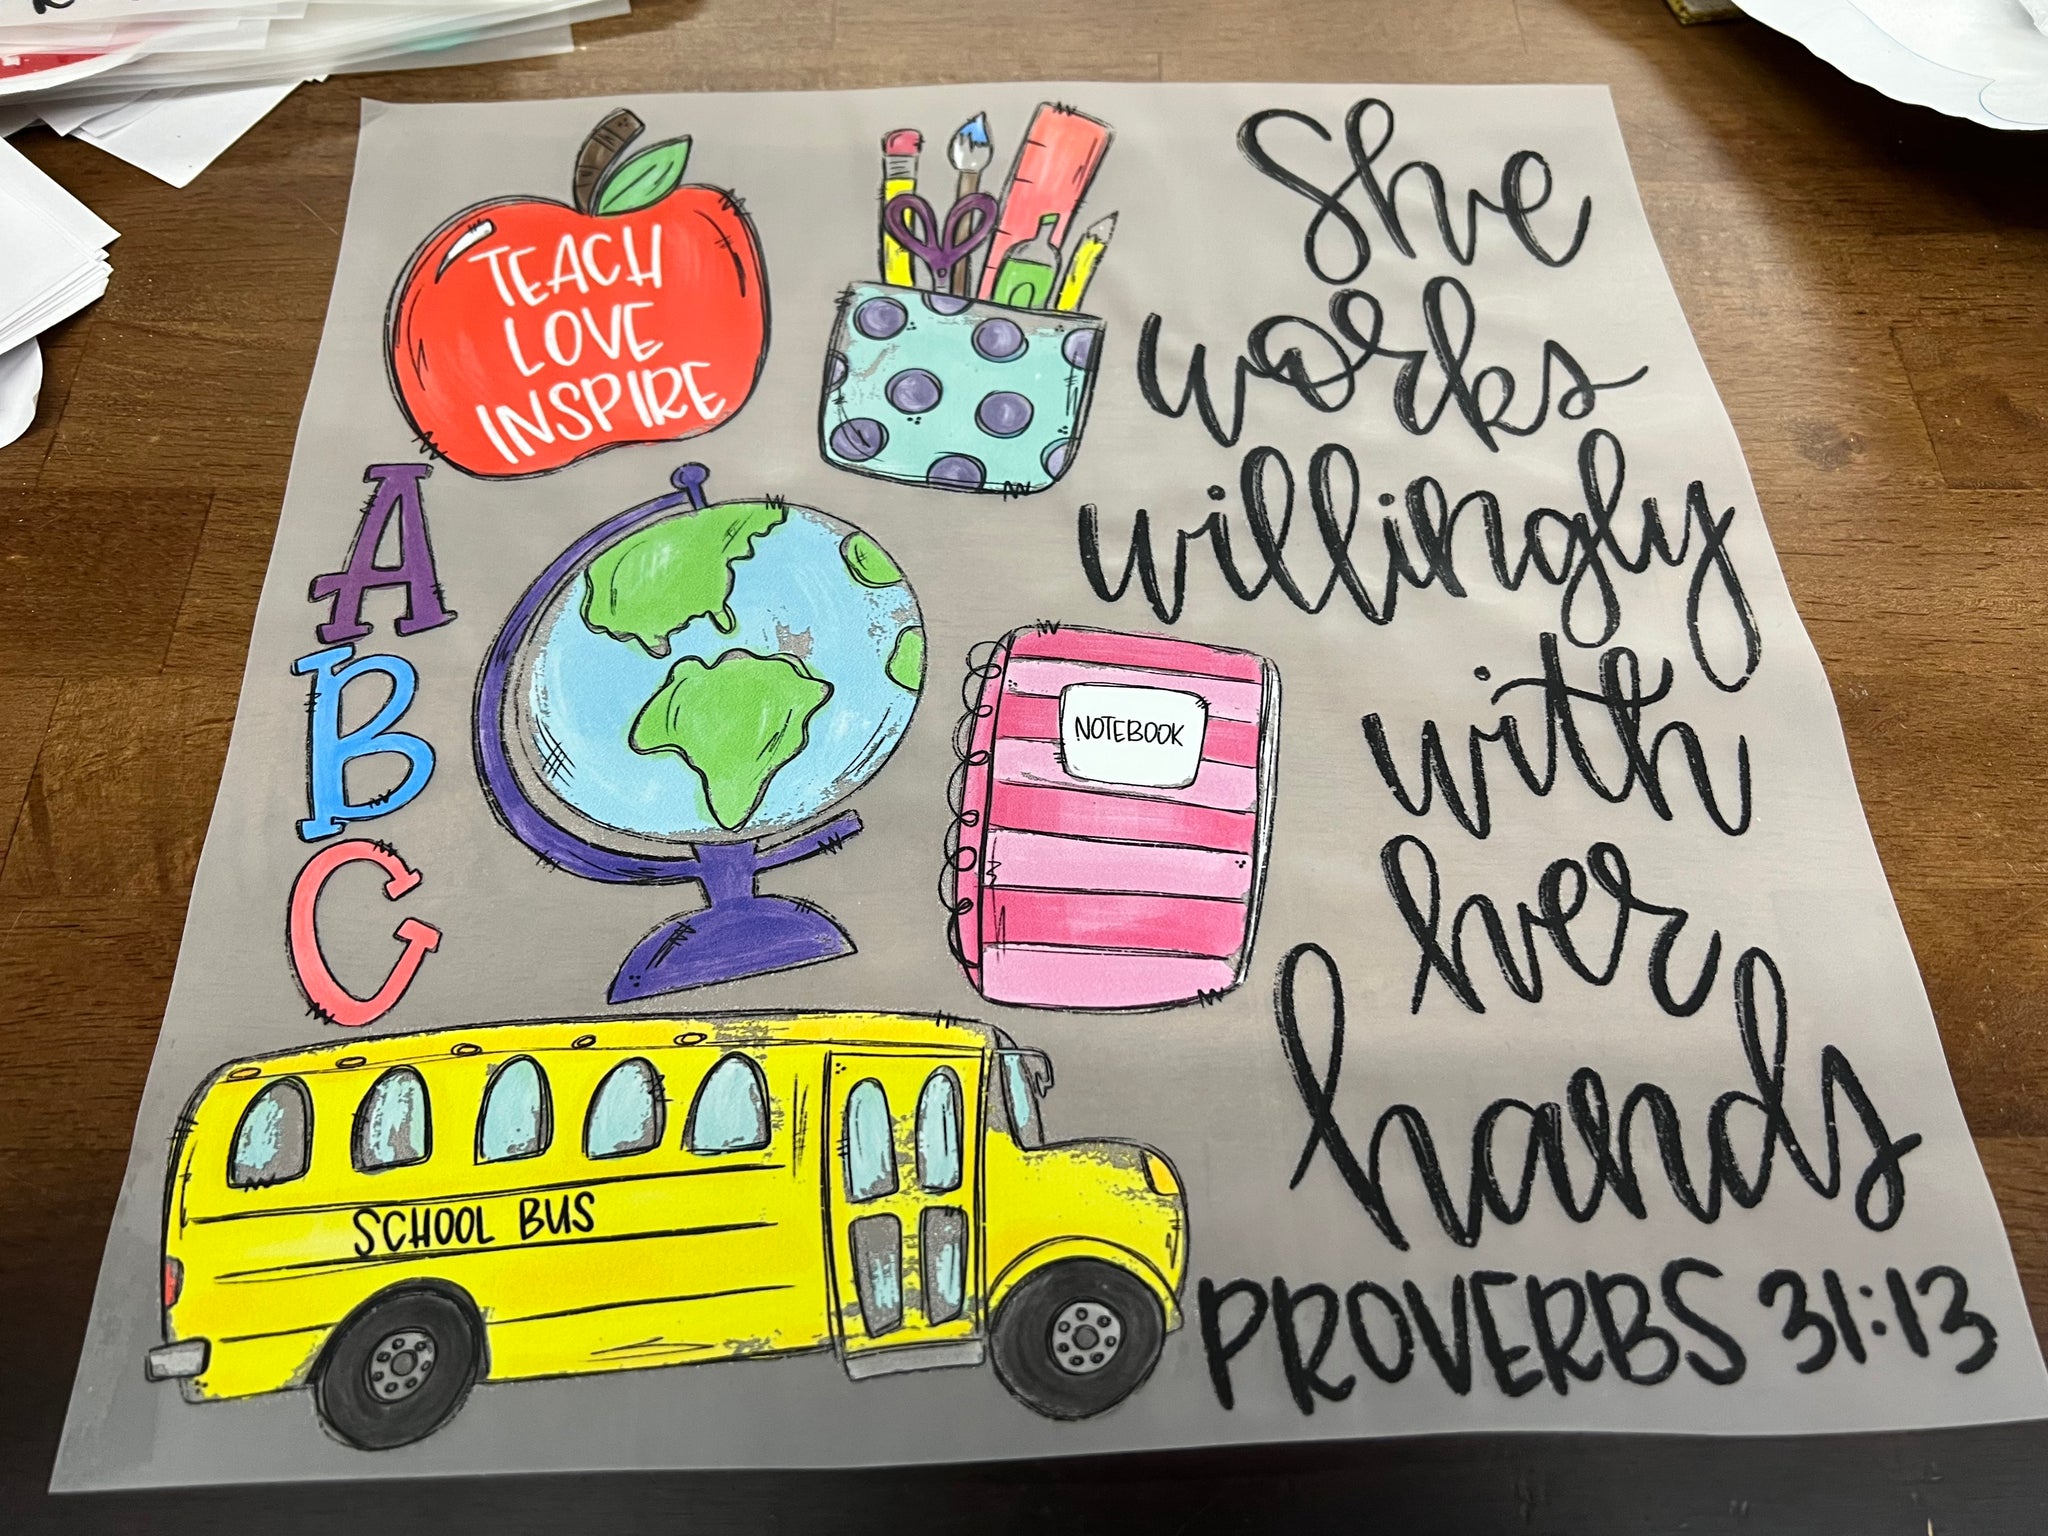 TEACH
LOVE
INSPIRE
She
works
willingly
with
her
hands
PROVERBS 31:13
A
B
C
NOTEBOOK
SCHOOL BUS